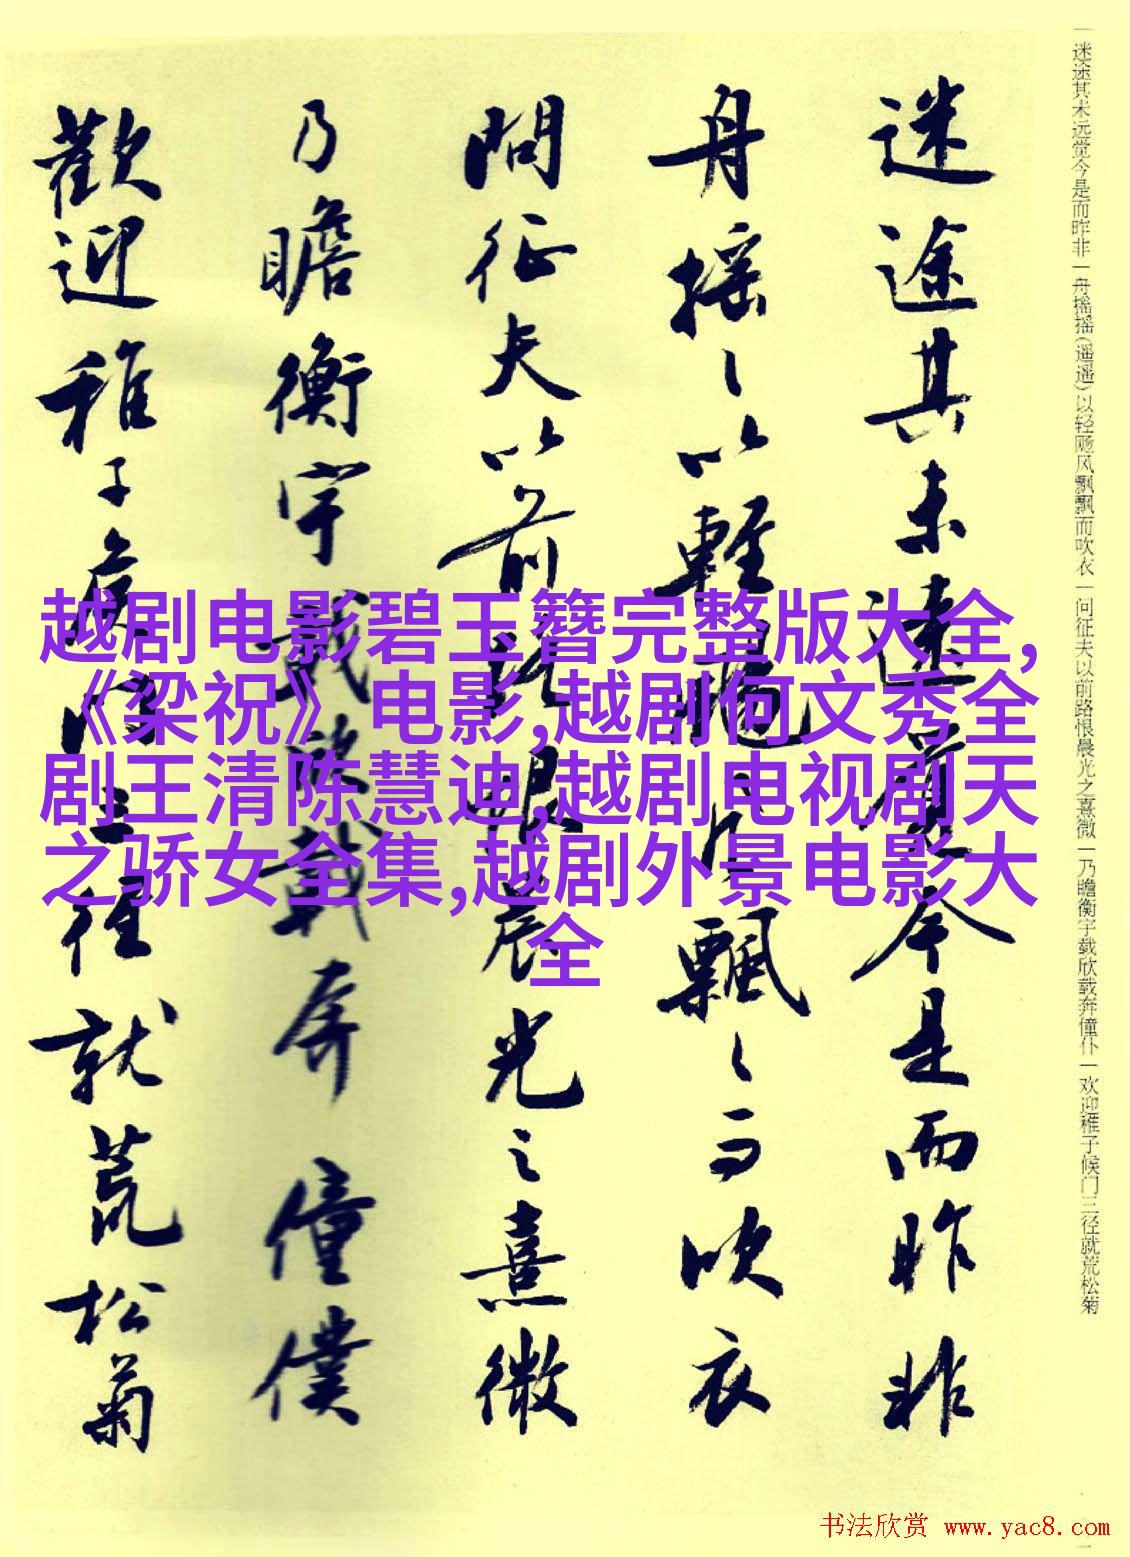 迷途其未远觉今是而昨非
舟摇〻以轻飏风飘〻而吹衣
問征夫以前路恨晨光之熹微
乃瞻衡宇載欣載奔僮僕
歡迎稚子候門三徑就荒松菊
一迷途其未远觉今是而昨非一舟摇摇(遥遥)以轻飏风飘飘而吹衣一问征夫以前路恨晨光之熹微一乃瞻衡宇载欣载奔僮仆一欢迎稚子候门三径就荒松菊
越剧电影碧玉簪完整版大全,
《梁祝》电影,越剧何文秀全
剧王清陈慧迪,越剧电视剧天
之骄女全集,越剧外景电影大
全
书法欣赏 www.yac8.com